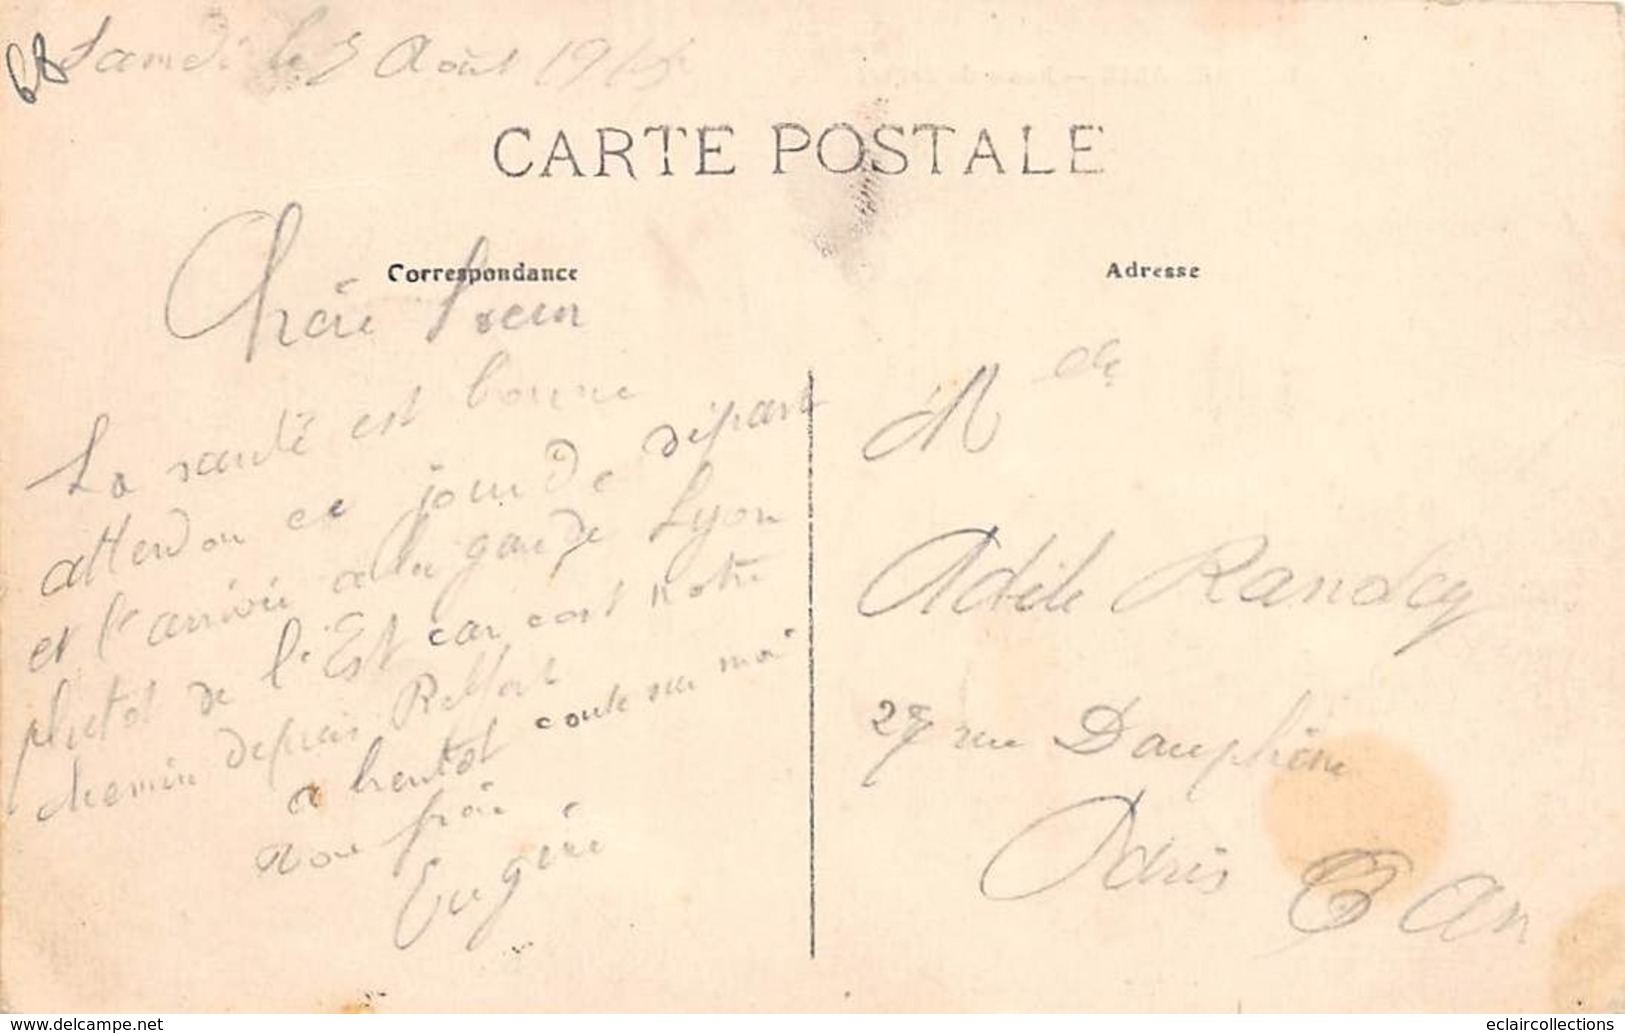 68
Samdi le 5 Aout 19
CARTE POSTALE
Correspondance
Adresse
Chère Sœur
La santé est bonne
attendon ce jour de départ
et l'arrivée a la gard de Lyon
plutot de l'Est car cest notre
chemin depuis Belfort
a bientot conte sur moi
Ton frère
Eugène
Melle
Adèle Randay
27 rue Dauphine
Paris
eclaircollections
www.delcampe.net